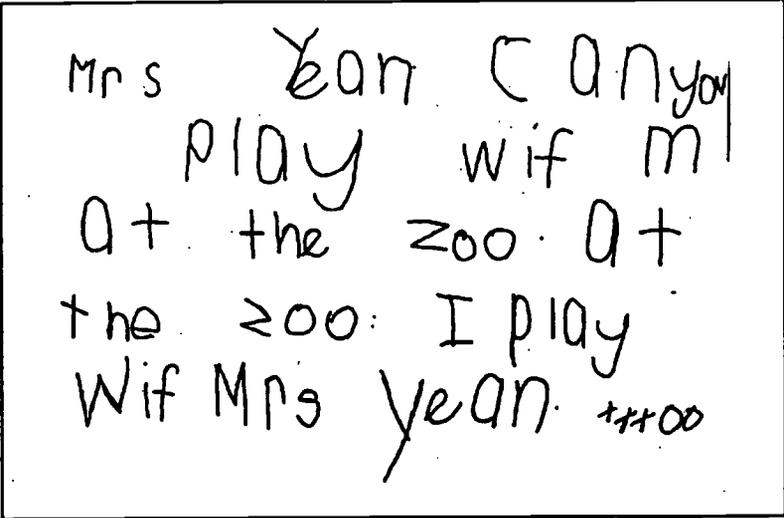 Mrs Yean Can you
Play wif m
at the zoo. at
the zoo. I play
Wif Mrs Yean. +++oo